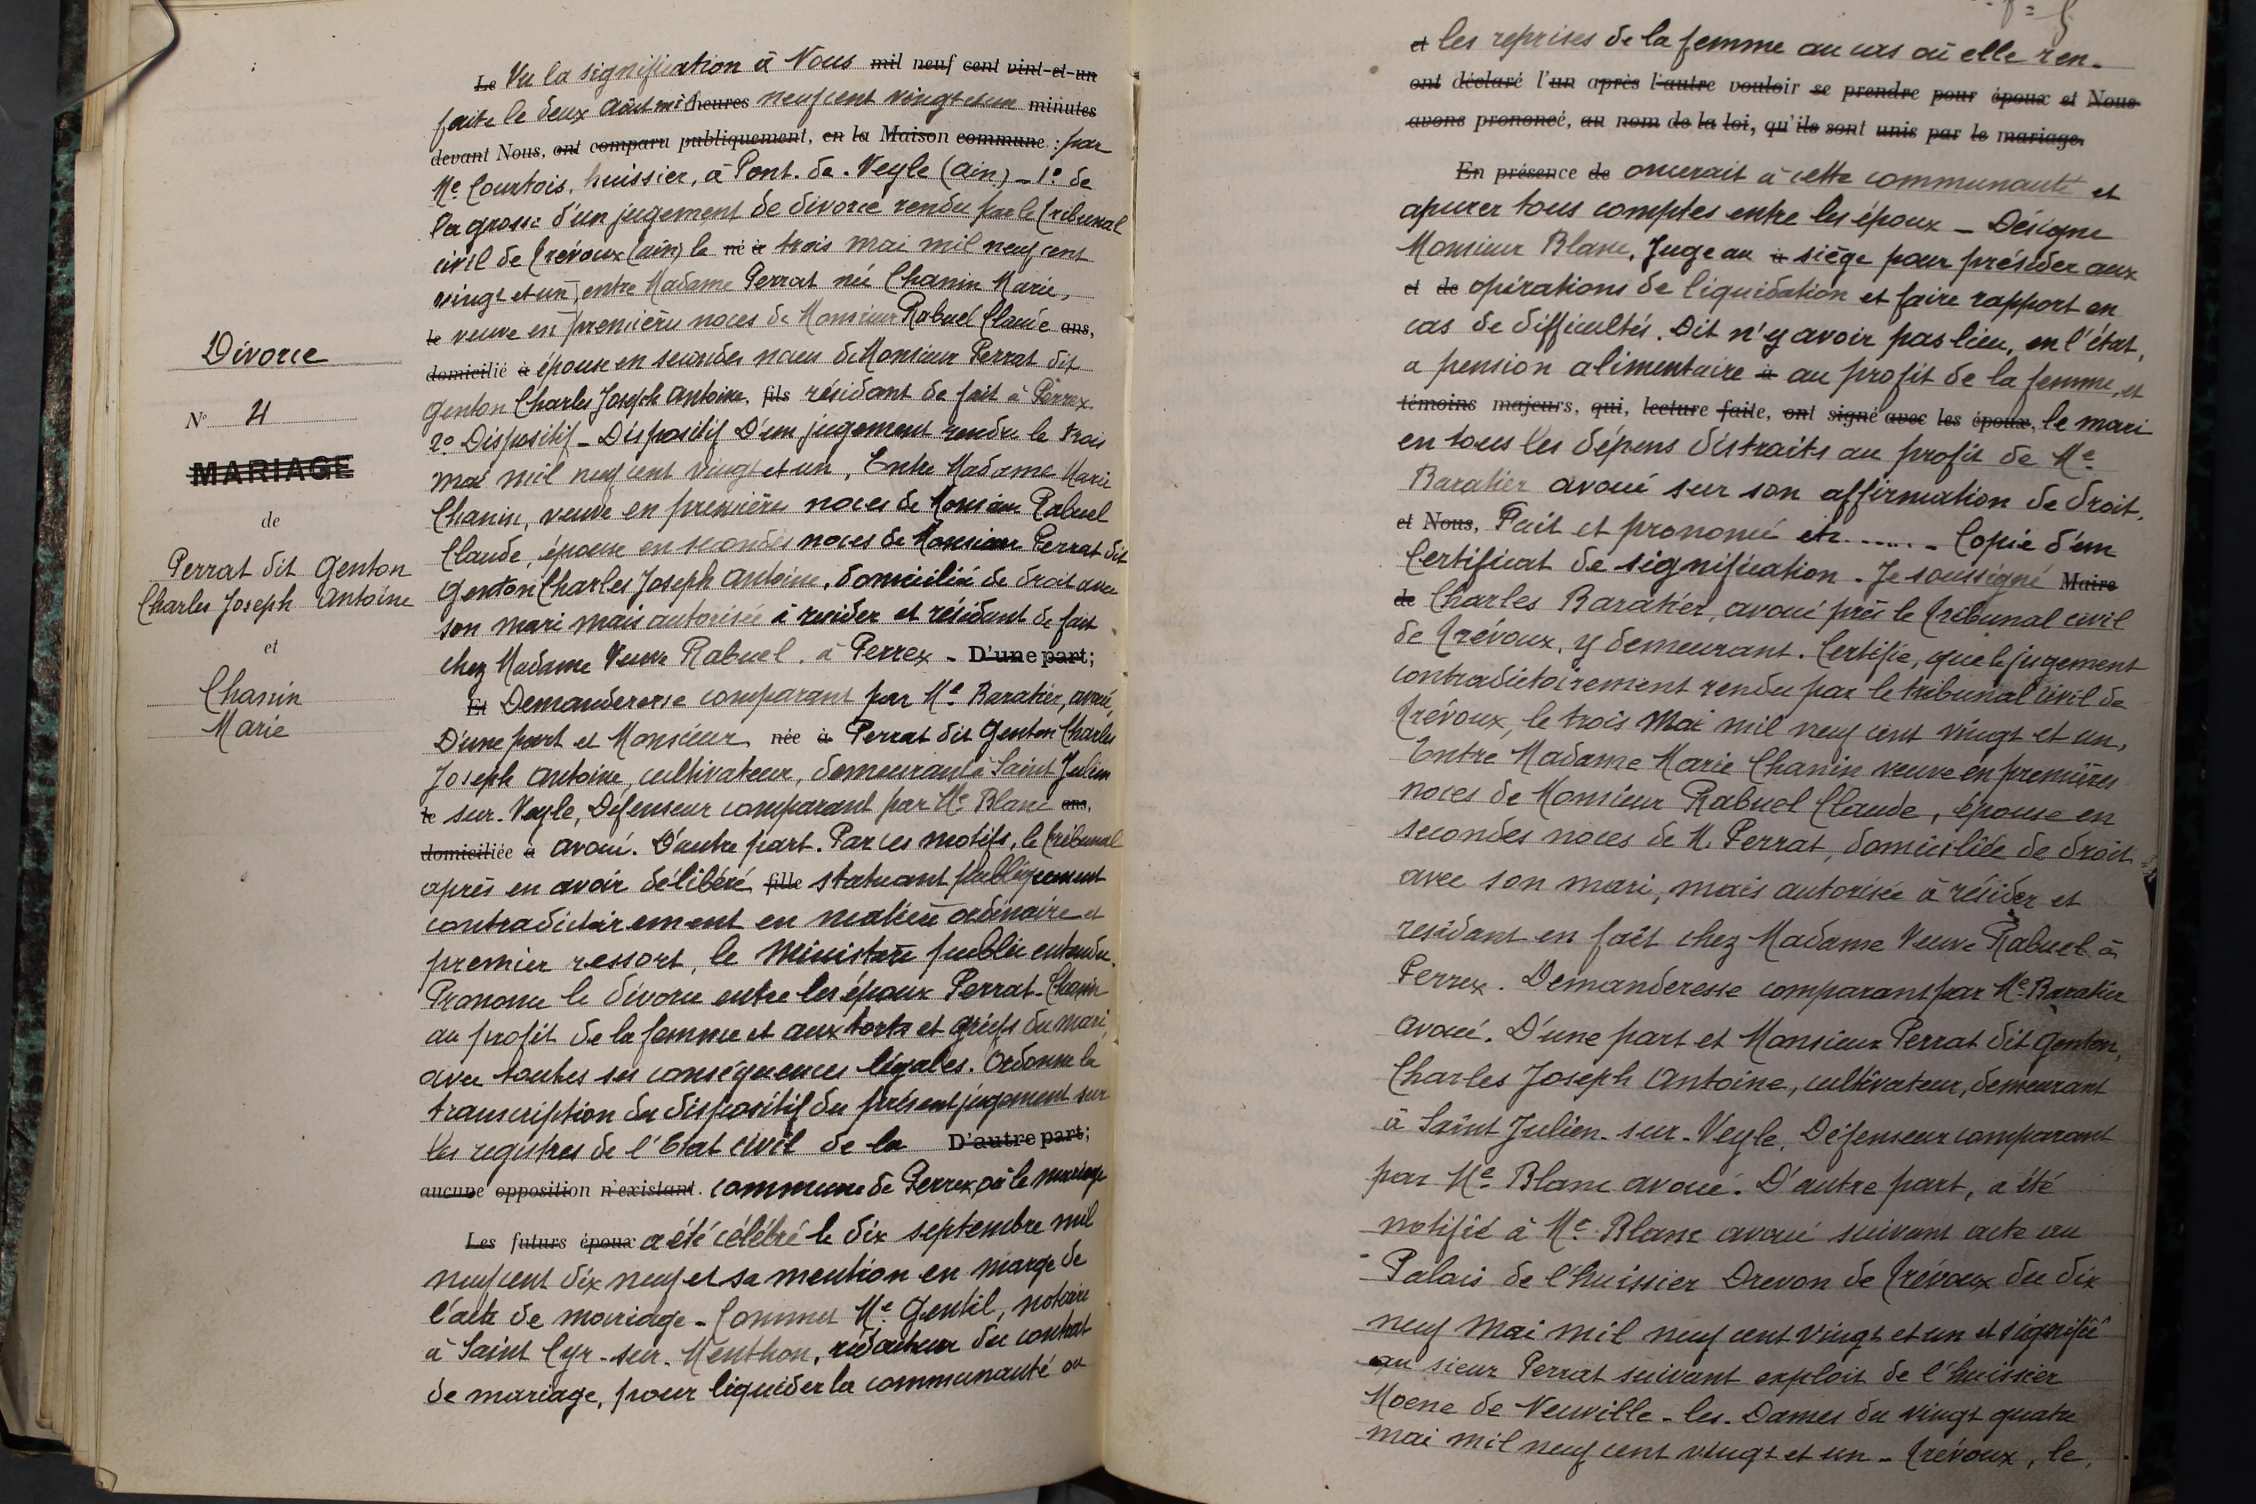 Divorce
N° 4
MARIAGE
de
Perrat dit Genton
Charles Joseph Antoine
et
Chanin
Marie
Le Vu la signification à Nous mil neuf cent vint-et-un
faite le deux Août mil heures neuf cent vingt et un minutes
devant Nous, ont comparu publiquement, en la Maison commune : par
Me Courtois, huissier, à Pont-de-Veyle (Ain) - 1° de
la grosse d'un jugement de divorce rendu par le Tribunal
civil de Trévoux (Ain) le né à trois mai mil neuf cent
vingt et un, entre Madame Perrat née Chanin Marie,
le veuve en premières noces de Monsieur Rabuel Claude ans,
domicilié à épouse en secondes noces de Monsieur Perrat dit
Genton Charles Joseph Antoine, fils résidant de fait à Perrex
2° Dispositif - Dispositif D'un jugement rendu le trois
mai mil neuf cent vingt et un, Entre Madame Marie
Chanin, veuve en premières noces de Monsieur Rabuel
Claude, épouse en secondes noces de Monsieur Perrat dit
Genton Charles Joseph Antoine, domiciliée de droit avec
son mari mais autorisée à resider et résidant de fait
chez Madame Veuve Rabuel, à Perrex - D'une part;
Et Demanderesse comparant par Me Baratier, avoué,
D'une part et Monsieur née à Perrat dit Genton Charles
Joseph Antoine, cultivateur, demeurant à Saint Julien
le sur-Veyle, Défenseur comparant par Me Blanc ans,
domiciliée à avoué. D'autre part. Par ces motifs, le Tribunal
après en avoir délibéré fille statuant publiquement
contradictoirement en matière ordinaire et
premier ressort, le Ministère public entendu.
Prononce le divorce entre les époux Perrat-Chanin
au profit de la femme et aux torts et griefs du mari,
avec toutes ses conséquences légales. Ordonne la
transcription du dispositif du présent jugement sur
les registres de l'Etat civil de la D'autre part;
aucune opposition n'existant. commune de Perrex où le mariage
Les futurs époux a été célébré le dix septembre mil
neuf cent dix neuf et sa mention en marge de
l'acte de mariage - Commet Me Gentil, notaire
à Saint Cyr-sur-Menthon, rédacteur du contrat
de mariage, pour liquider la communauté ou
et les reprises de la femme au cas où elle ren-
ont déclaré l'un après l'autre vouloir se prendre pour époux et Nous
avons prononcé, au nom de la loi, qu'ils sont unis par le mariage.
En présence de oncerait à cette communauté et
apurer tous comptes entre les époux - Désigne
Monsieur Blanc, Juge au à siège pour présider aux
et de opérations de liquidation et faire rapport en
cas de difficultés. Dit n'y avoir pas lieu, en l'état,
a pension alimentaire à au profit de la femme, et
témoins majeurs, qui, lecture faite, ont signé avec les époux, le mari
en tous les dépens distraits au profit de Me
Baratier avoué sur son affirmation de droit.
et Nous, Fait et prononcé etc....... - Copie d'un
Certificat de signification - Je soussigné Maire
de Charles Baratier, avoué près le Tribunal civil
de Trévoux, y demeurant. Certifie, que le jugement
contradictoirement rendu par le tribunal civil de
Trévoux, le trois Mai mil neuf cent vingt et un,
Entre Madame Marie Chanin veuve en premières
noces de Monsieur Rabuel Claude, épouse en
secondes noces de M. Perrat, domiciliée de droit
avec son mari, mais autorisée à résider et
residant en fait chez Madame Veuve Rabuel à
Perrex. Demanderesse comparant par Me Baratier
avoué. D'une part et Monsieur Perrat dit Genton,
Charles Joseph Antoine, cultivateur, demeurant
à Saint Julien-sur-Veyle, Défenseur comparant
par Me Blanc avoué. D'autre part, a été
notifié à Me Blanc avoué suivant acte au
Palais de l'huissier Drevon de Trévoux du dix
neuf mai mil neuf cent vingt et un et signifié
au sieur Perrat suivant exploit de l'huissier
Moene de Neuville-les-Dames du vingt quatre
mai mil neuf cent vingt et un - Trévoux, le